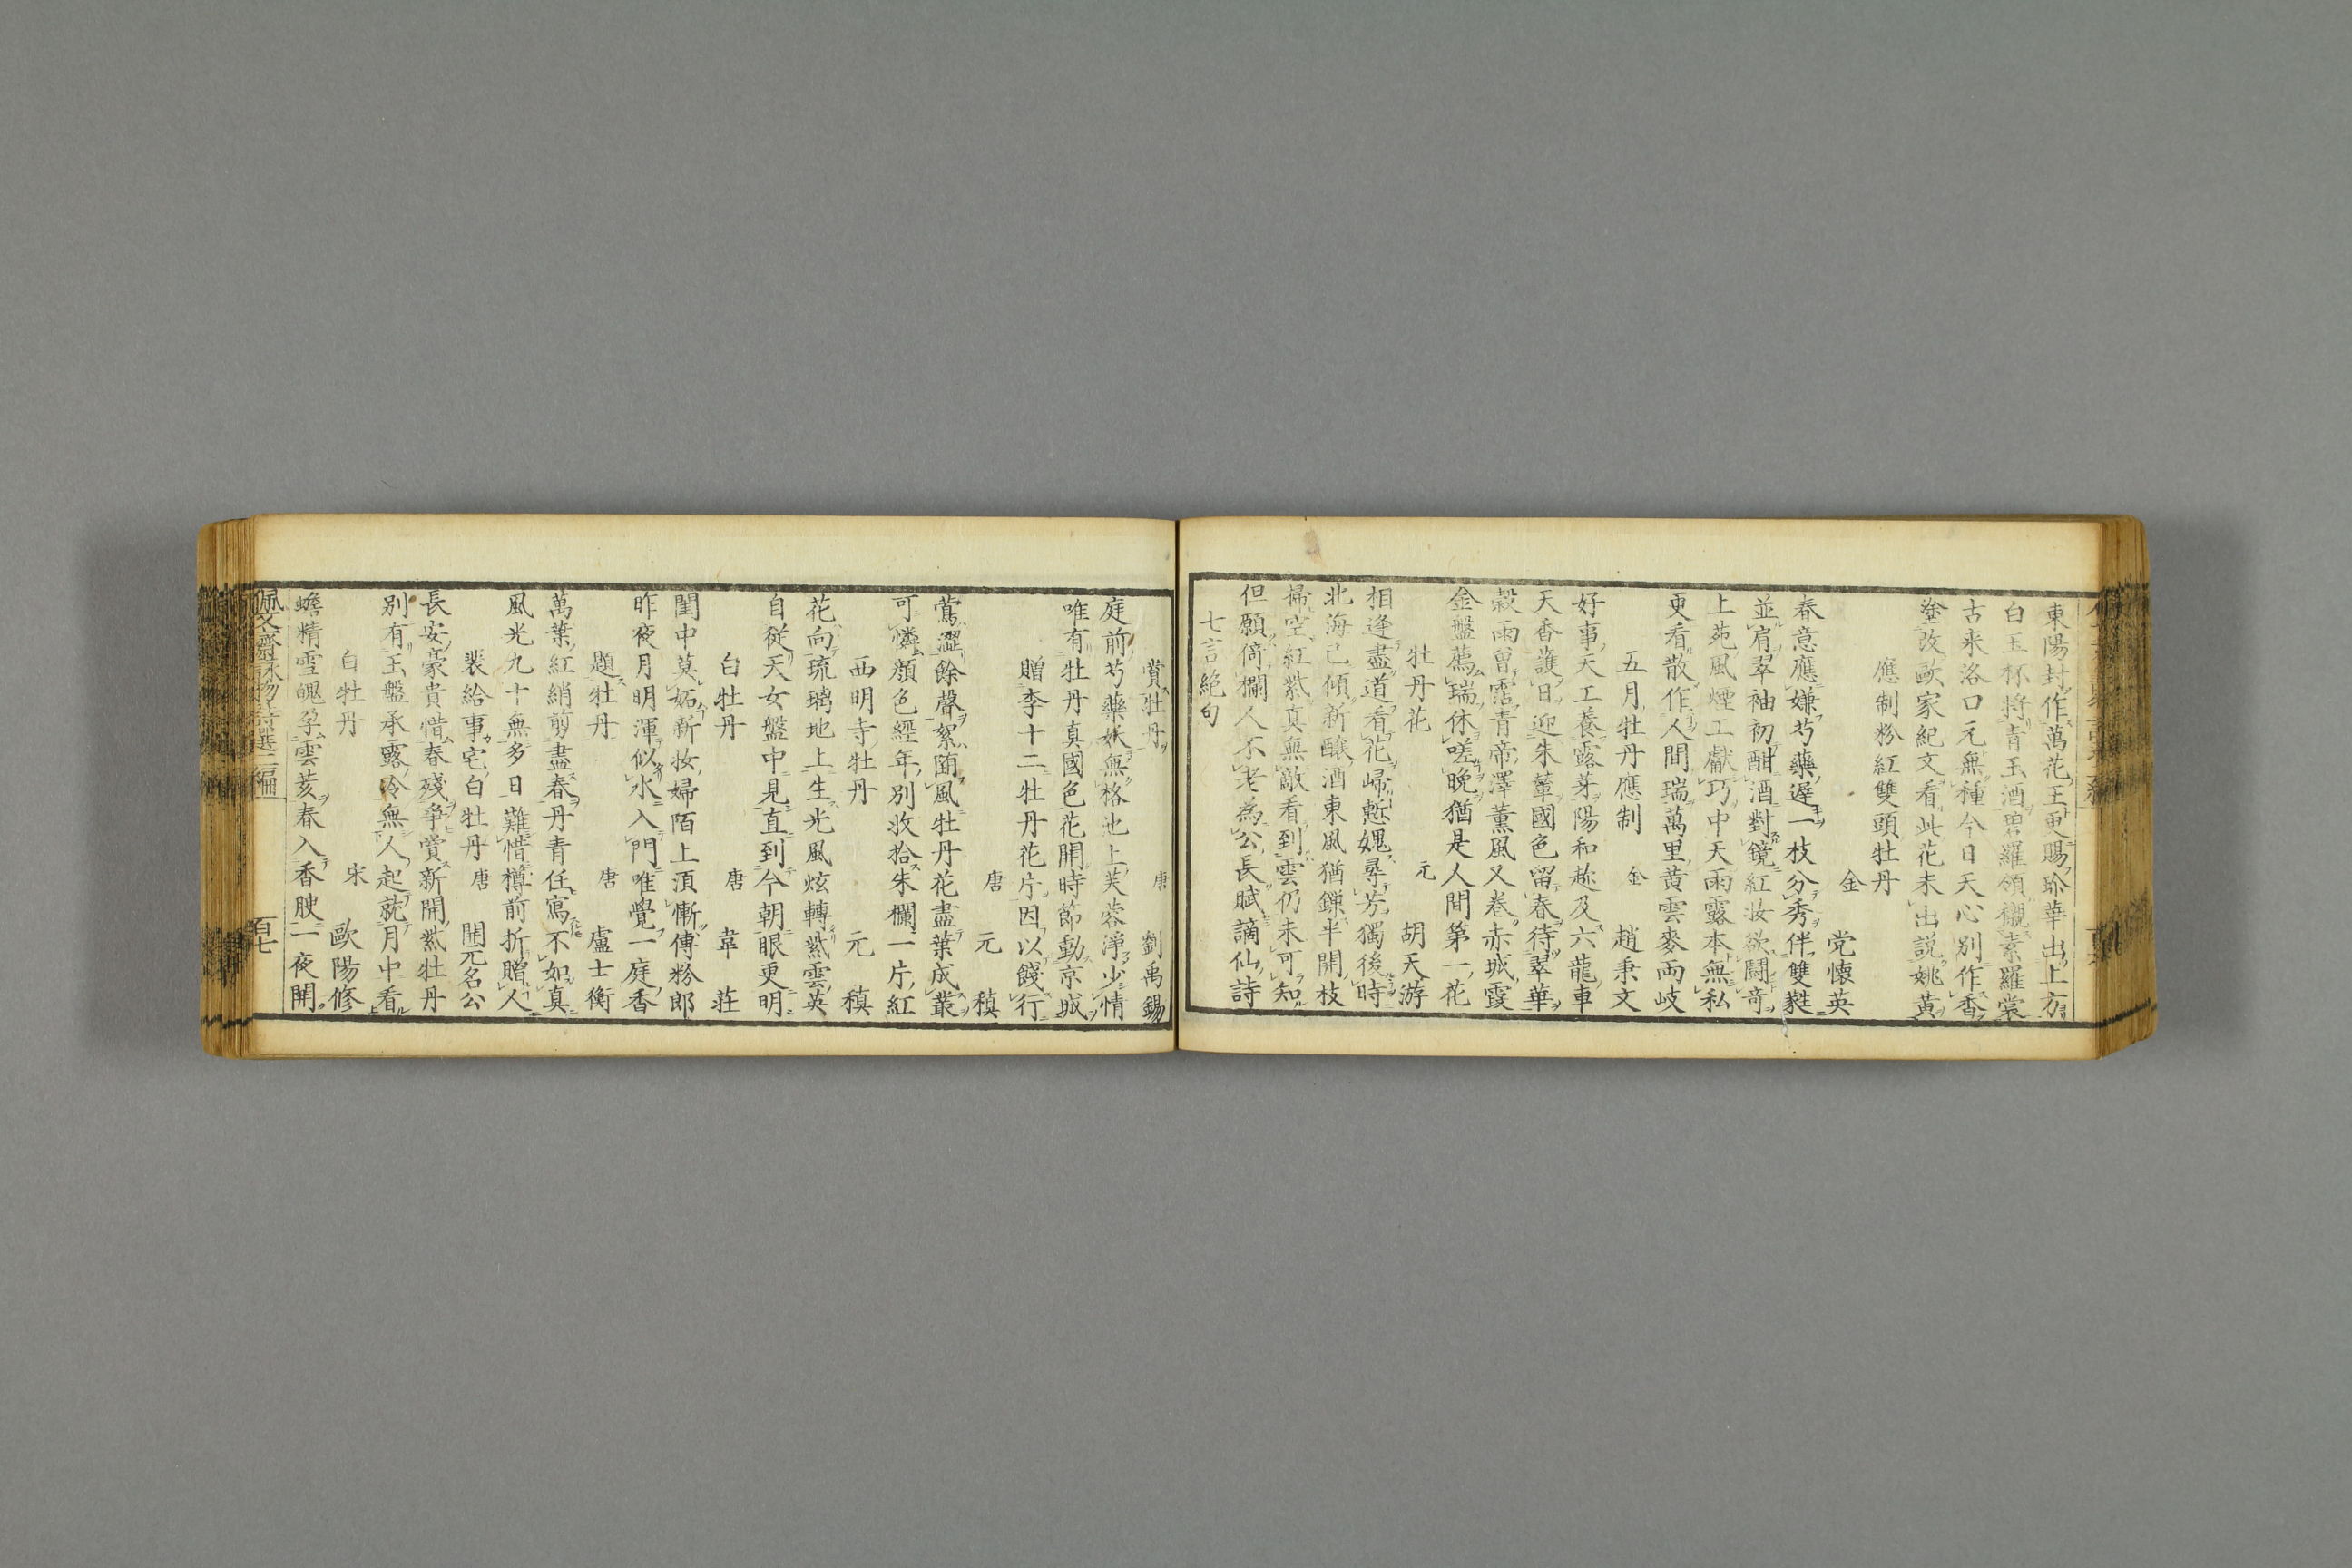 東陽封作萬花王更賜珍華出上方
白玉杯將青玉酒碧羅領襯素羅裳
古来洛口元無種今日天心別作香
塗改歐家紀文看此花未出説姚黃
應制粉紅雙頭牡丹
金 党懐英
春意應嫌芍藥遲一枝分秀伴雙蕤
並肩翠袖初酣酒對鏡紅妝欲鬪奇
上苑風煙工獻巧中天雨露本無私
更看散作人間瑞萬里黄雲麥兩岐
五月牡丹應制 金 趙秉文
好事天工養露芽陽和趂及六龍車
天香護日迎朱輦國色留春待翠華
穀雨曽霑青帝澤薫風又卷赤城霞
金盤薦瑞休嗟晩猶是人間第一花
牡丹花 元 胡天游
相逢盡道看花歸慙媿尋芳獨後時
北海已傾新醸酒東風猶鏁半開枝
掃空紅紫真無敵看到雲仍未可知
但願倚欄人不老為公長賦謫仙詩
七言絶句
賞牡丹 唐 劉禹錫
庭前芍藥妖無格池上芙蓉淨少情
唯有牡丹真國色花開時節動京城
贈李十二牡丹花片因以餞行
唐 元稹
鶯澀餘聲絮墮風牡丹花盡葉成叢
可憐顔色經年別收拾朱欄一片紅
西明寺牡丹 元稹
花向琉璃地上生光風炫轉紫雲英
自従天女盤中見直到今朝眼更明
白牡丹 唐 韋莊
閨中莫妬新妝婦陌上湏慚傅粉郎
昨夜月明渾似水入門唯覺一庭香
題牡丹 唐 盧士衡
萬葉紅綃剪盡春丹青任寫不如真
風光九十無多日難惜樽前折贈人
裴給事宅白牡丹 唐 開元名公
長安豪貴惜春殘爭賞新開紫牡丹
別有玉盤承露冷無人起就月中看
白牡丹 宋 歐陽修
蟾精雪魄孕雲荄春入香腴一夜開
佩文齋詠物詩選二編 百七